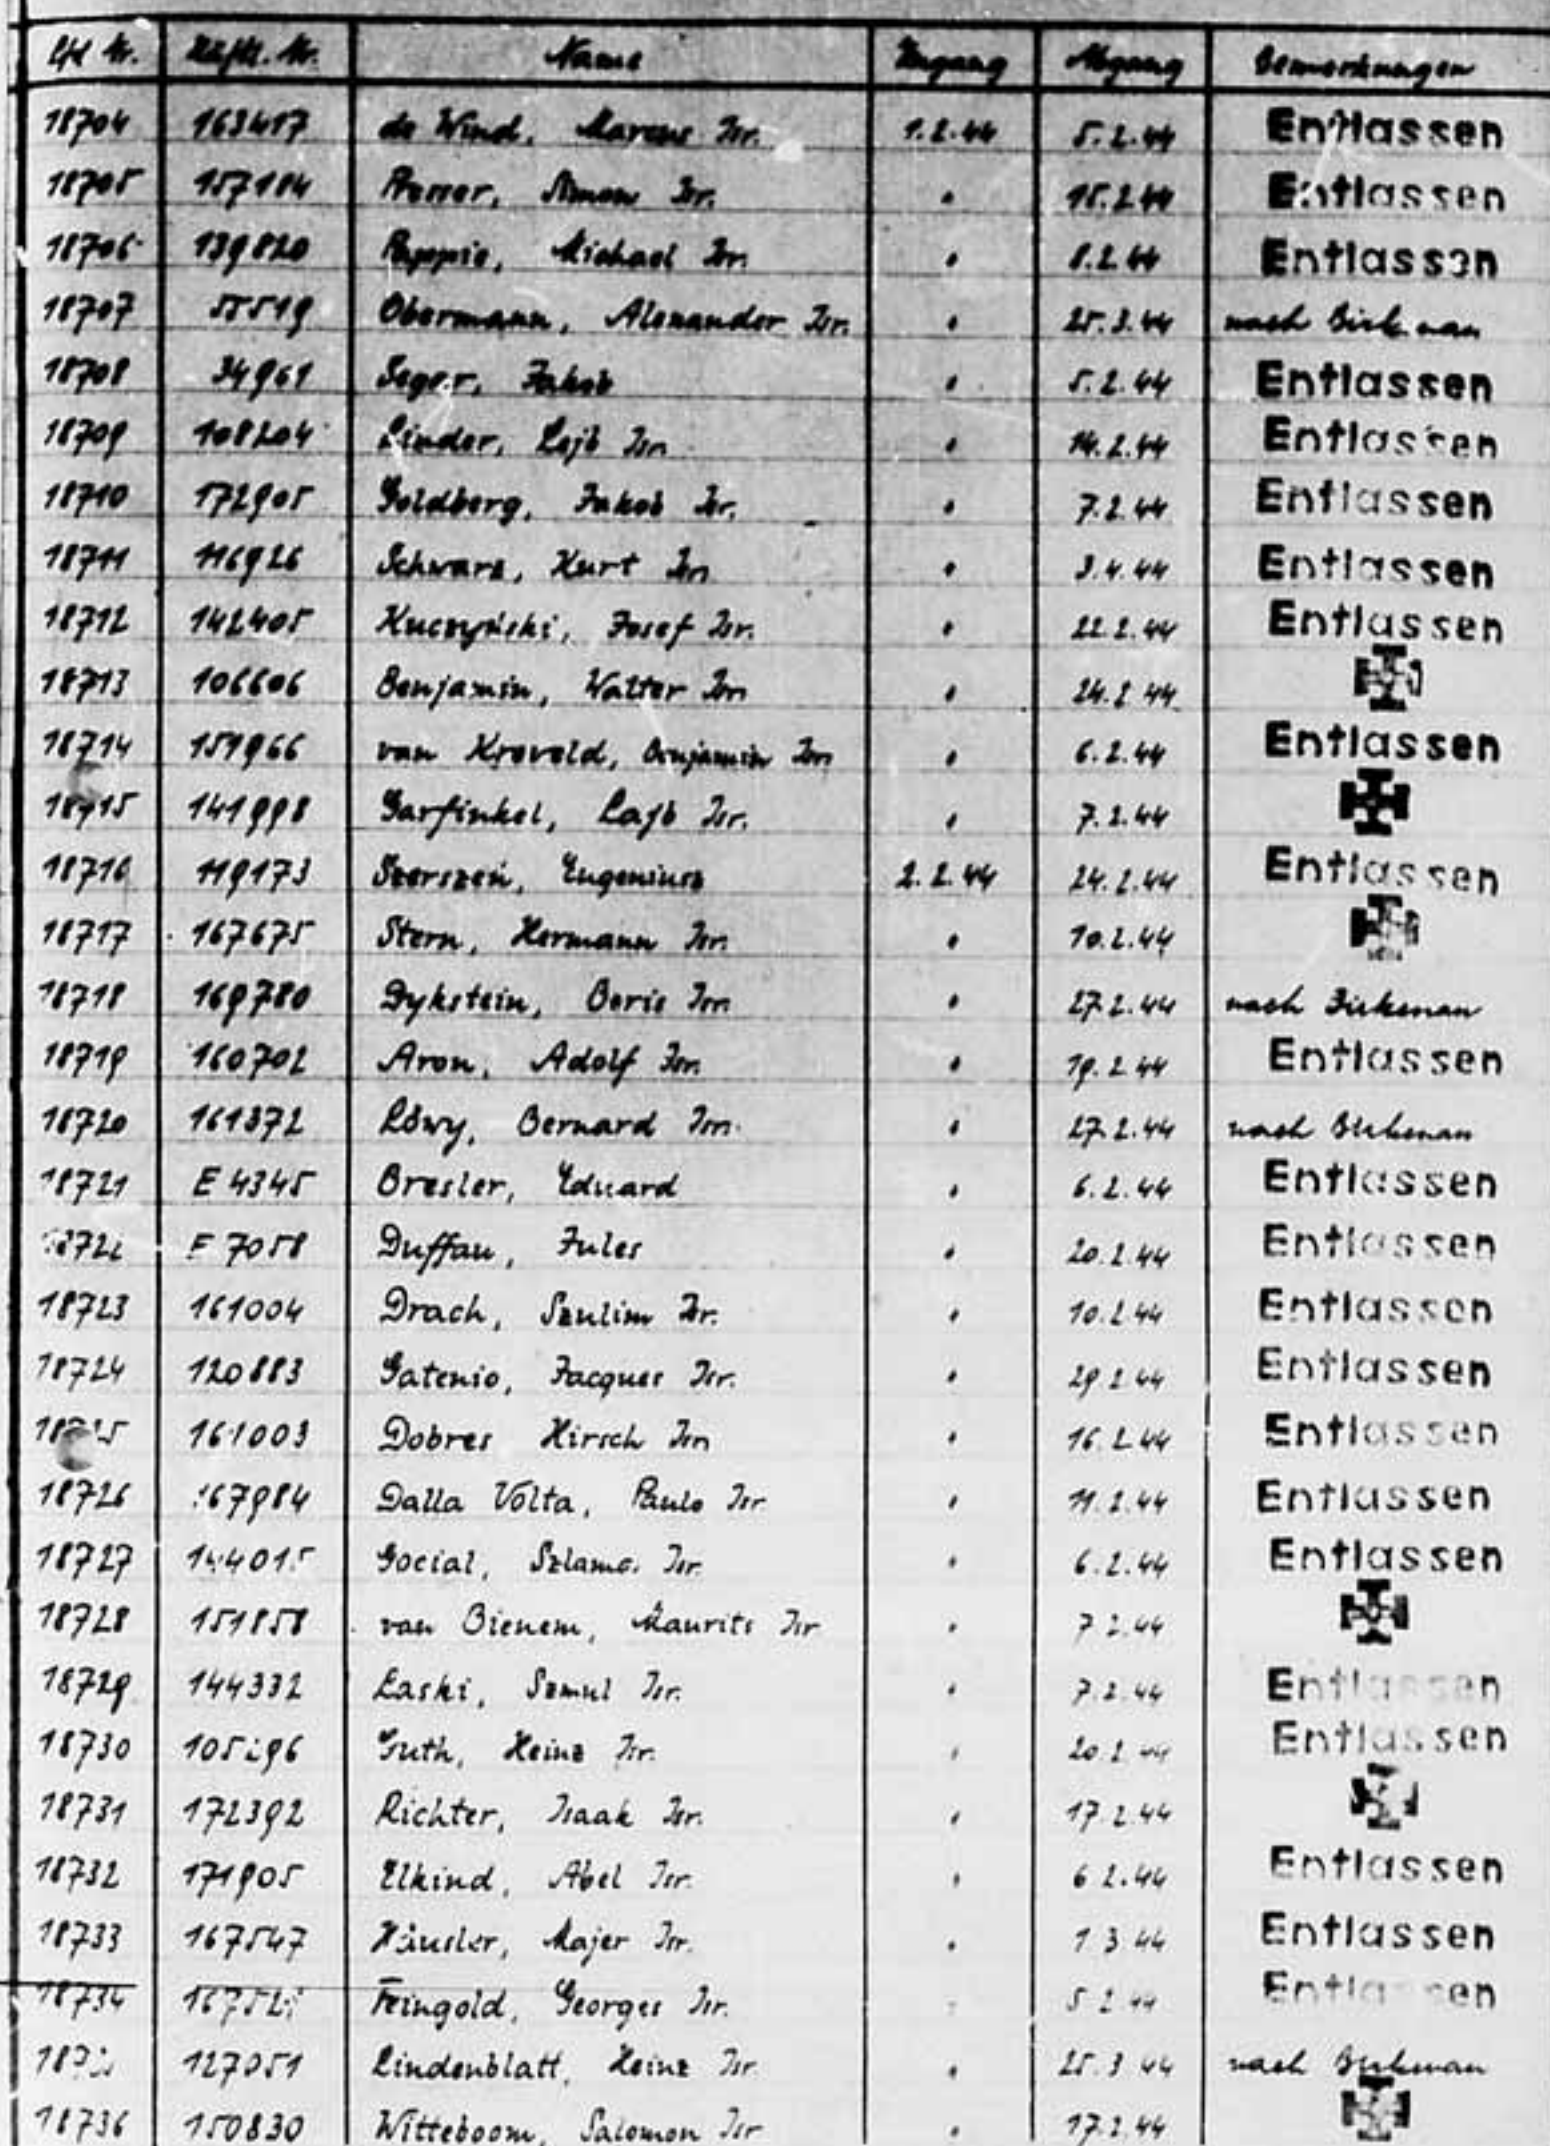 Lfd Nr. Häftl. Nr. Name Zugang Abgang Bemerkungen
18704 163417 de Wind, Marcus Isr. 1.2.44 5.2.44 Entlassen
18705 157184 Simon Isr. " 15.2.44 Entlassen
18706 139820 Michael Isr. " 8.2.44 Entlassen
18707 55519 Obermann, Alexander Isr. " 25.3.44 nach Birkenau
18708 34961 Jakob " 5.2.44 Entlassen
18709 108204 Linder, Lejb Isr. " 14.2.44 Entlassen
18710 172905 Goldberg, Jakob Isr. " 7.2.44 Entlassen
18711 116926 Schwarz, Kurt Isr. " 3.4.44 Entlassen
18712 142405 Kuczyński, Josef Isr. " 22.2.44 Entlassen
18713 106606 Benjamin, Walter Isr. " 24.2.44
18714 151966 van Kreveld, Benjamin Isr. " 6.2.44 Entlassen
18715 141998 Garfinkel, Lajb Isr. " 7.2.44
18716 119173 Szerszeń, Eugeniusz 2.2.44 24.2.44 Entlassen
18717 167675 Stern, Hermann Isr. " 10.2.44
18718 169780 Dykstein, Boris Isr. " 27.2.44 nach Birkenau
18719 160702 Aron, Adolf Isr. " 19.2.44 Entlassen
18720 161372 Löwy, Bernard Isr. " 27.2.44 nach Birkenau
18721 E 4345 Bresler, Eduard " 6.2.44 Entlassen
18722 E 7058 Duffau, Jules " 20.2.44 Entlassen
18723 161004 Drach, Szulim Isr. " 10.2.44 Entlassen
18724 120883 Gatenio, Jacques Isr. " 29.2.44 Entlassen
18725 161003 Dobres Hirsch Isr. " 16.2.44 Entlassen
18726 167984 Dalla Volta, Paulo Isr " 11.2.44 Entlassen
18727 144015 Gocial, Szlama Isr. " 6.2.44 Entlassen
18728 151858 van Bienem, Maurits Isr " 7.2.44
18729 144332 Laski, Szmul Isr. " 7.2.44 Entlassen
18730 Guth, Heinz Isr. " 20.2.44 Entlassen
18731 172392 Richter, Isaak Isr. " 17.2.44
18732 171905 Elkind, Abel Isr. " 6 2.44 Entlassen
18733 167547 Häusler, Majer Isr. " 1 3 44 Entlassen
18734 Feingold, Georges Isr. " 5 2 44 Entlassen
127051 Lindenblatt, Heinz Isr. " 25.3 44 nach Birkenau
18736 150830 Witteboom, Salomon Isr " 17.2.44